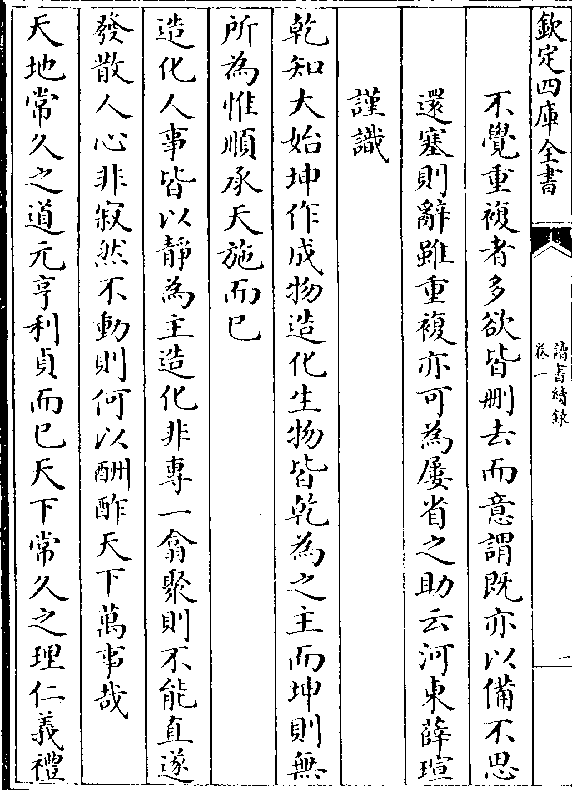 欽定四庫全書
讀書續錄
卷一
一
不覺重複者多欲皆刪去而意謂既亦以備不思
還塞則辭雖重複亦可為屢省之助云河東薛瑄
謹識
乾知大始坤作成物造化生物皆乾為之主而坤則無
所為惟順承天施而已
造化人事皆以靜為主造化非專一翕聚則不能直遂
發散人心非寂然不動則何以酬酢天下萬事哉
天地常久之道元亨利貞而已天下常久之理仁義禮